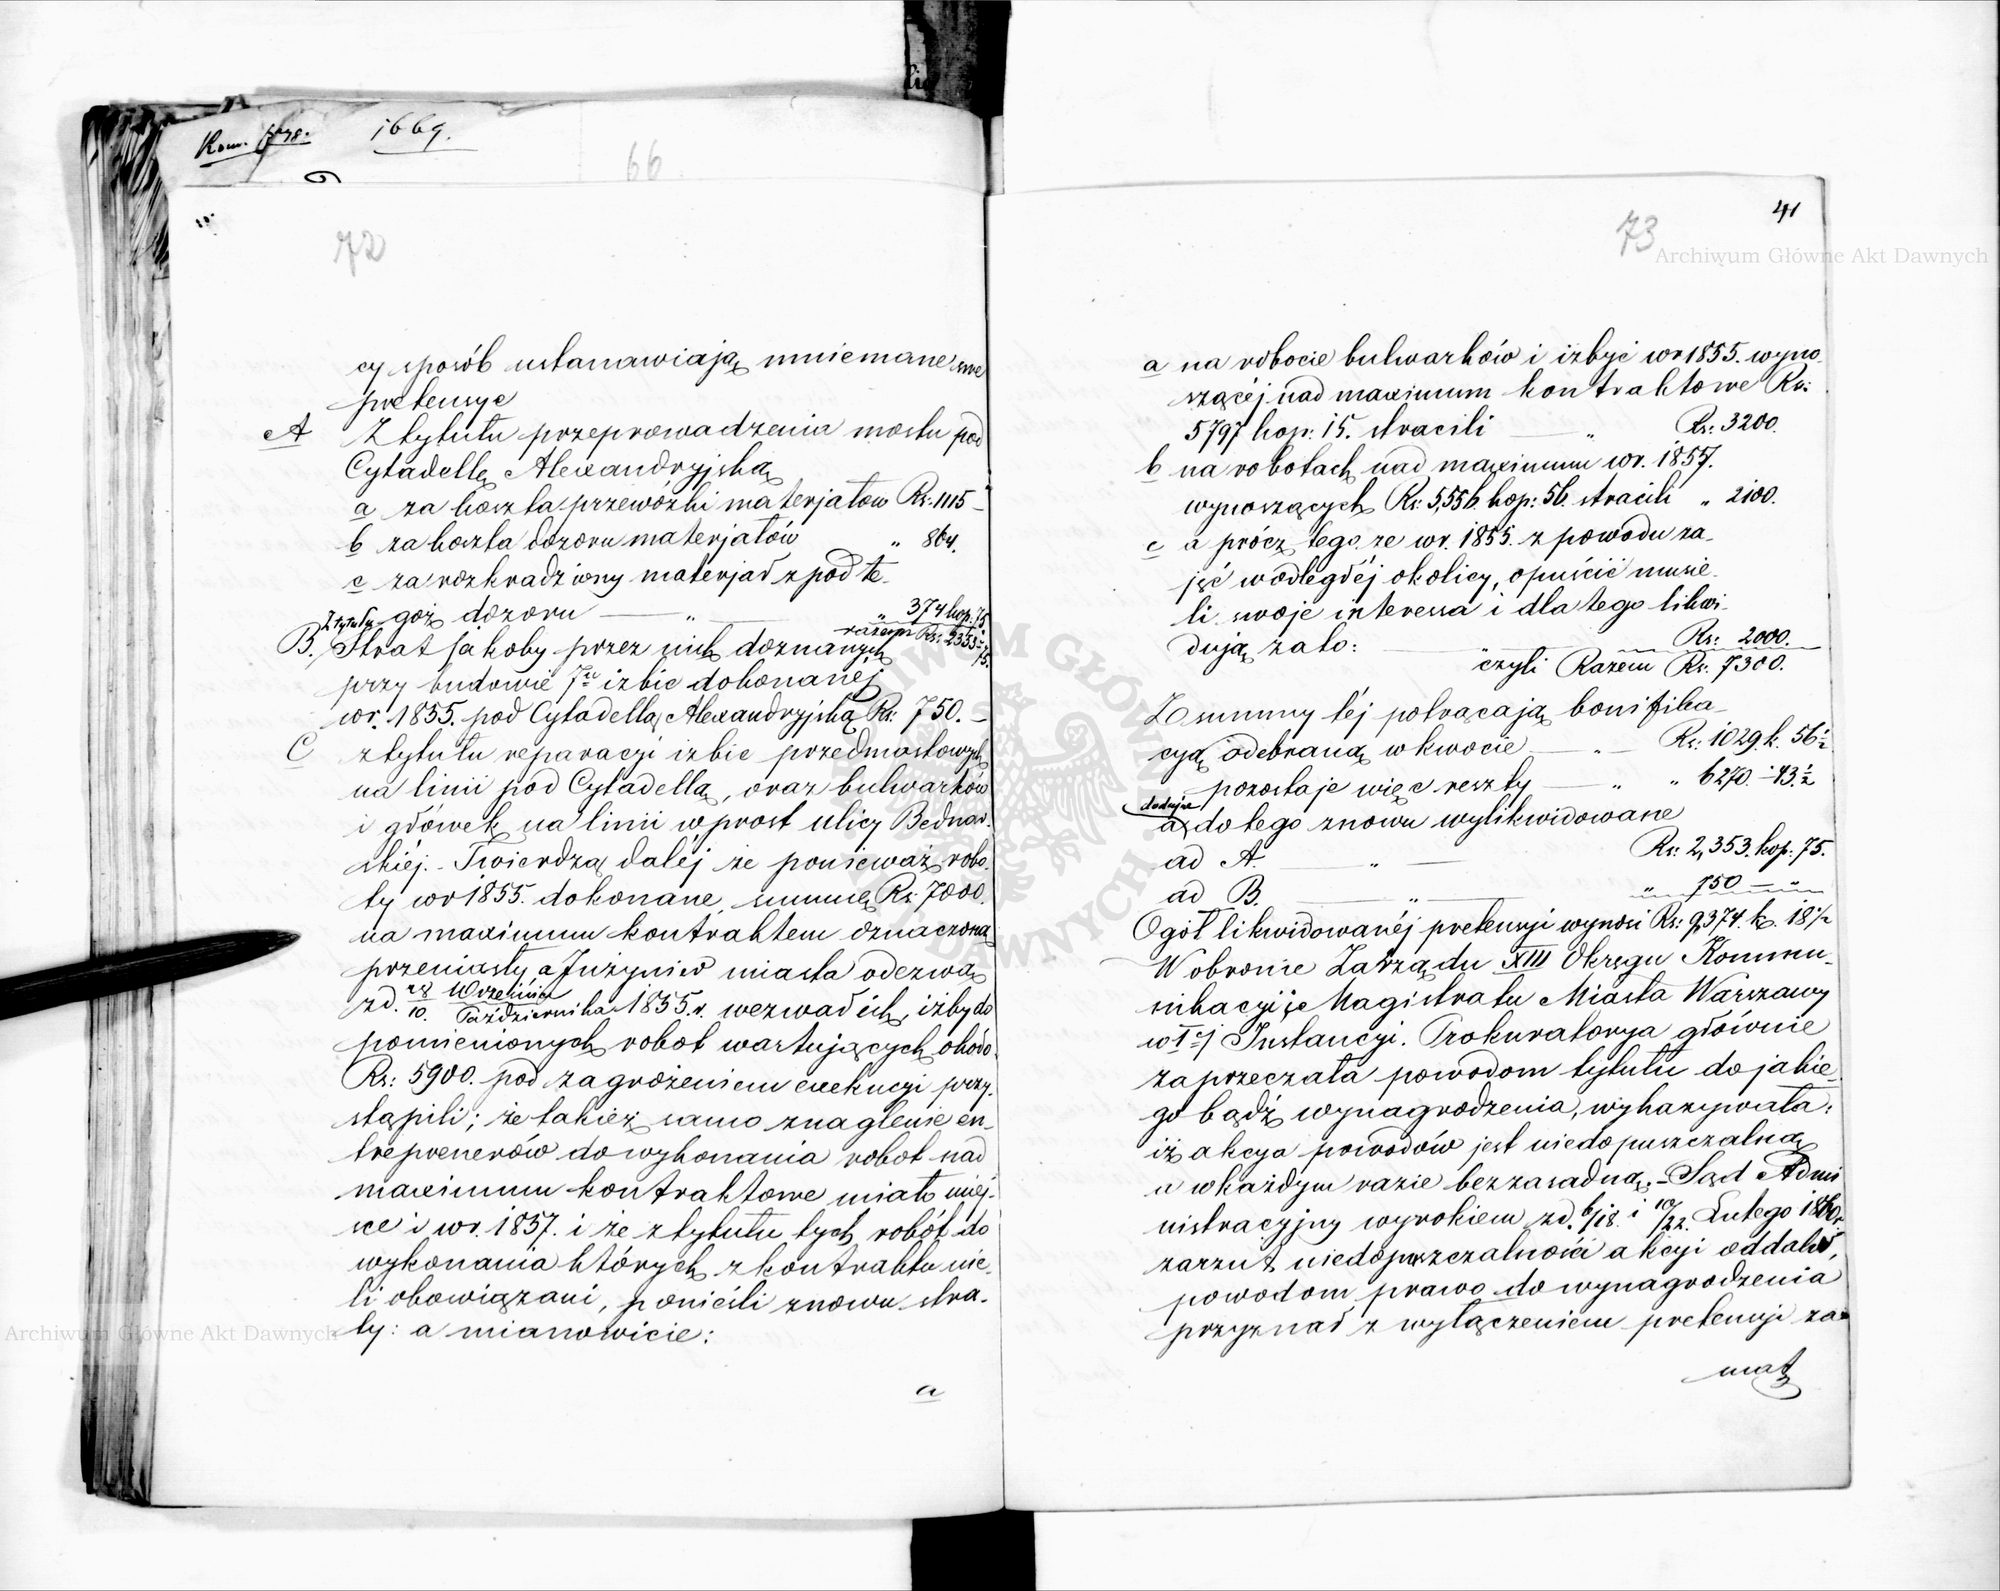 1669.
66
72
cy sposób ustanawiają mniemane swe
pretensye
A Z tytułu przeprowadzenia mostu pod
Cytadellą Alexandryjską
a za koszta przewózki materjałów Rs: 1115 —
b za koszta dozoru materjałów „ 864.
c za rozkradziony materjał z pod te-
goż dozoru — „ — „ 374 kop. 75
razem Rs: 2353 75.
B. Z tytułu Strat jakoby przez nich doznanych
przy budowie 7iu izbic dokonanéj
w r. 1855. pod Cytadellą Alexandryjską Rs: 750. —
C z tytułu reparacyi izbic przedmostowych
na linii pod Cytadellą, oraz bulwarków
i główek na linii wprost ulicy Bednar-
skiéj. - Twierdzą daléj że ponieważ robo-
ty w r 1855. dokonane, summę Rs: 7000.
na maximum kontraktem oznaczoną
przeniosły a Inżynier miasta odezwą
z d. 28/10. Września/Października 1855. r. wezwał ich, iżby do
pomienionych robót wartujących około
Rs: 5900. pod zagrożeniem exekucyi przy-
stąpili; że takież samo znaglenie en-
treprenerów do wykonania robót nad
maximum kontraktowe miało miej-
sce i w r. 1857. i że z tytułu tych robót do
wykonania których z kontraktu nie
li obowiązani, ponieśli znowu stra-
ty: a mianowicie:
a
41
73
a na robocie bulwarków i izbyć w r 1855. wyno-
szącéj nad maximum kontraktowe Rs:
5797 kop: 15. stracili — „ Rs: 3200.
b na robotach nad maximum w r. 1857.
wynoszących Rs: 5,556. kop: 56. stracili „ 2100.
c a prócz tego że w r. 1855. z powodu za-
jęć w odległéj okolicy, opuścić musie-
li swoje interessa i dla tego likwi-
dują za to: — „ — Rs: 2000.
czyli Razem Rs: 7300.
Z summy téj potrącają bonifika-
cyą odebraną w kwocie — „ — Rs: 1029 k. 56 1/2
pozostaje więc reszty — „ „ 6270. - 43 1/2
dodając
do tego znowu wylikwidowane
ad A. — „ — Rs: 2,353. kop: 75.
ad B. — „ — „ 750 — „
Ogół likwidowanéj pretensyi wynosi Rs: 9,374. k. 18 1/2
W obronie Zarządu XIII Okręgu Kommu-
nikacyi i Magistratu Miasta Warszawy
w Iej Instancyi. Prokuratorya głównie
zaprzeczała powodom tytułu do jakie-
go bądź wynagrodzenia, wykazywała:
iż akcya powodów jest niedopuszczalną
a w każdym razie bezzasadną. - Sąd Admi
nistracyjny wyrokiem z d. 6/18. i 10/22. Lutego 1860 r.
zarzut niedopuszczalności akcyi oddalił,
powodom prawo do wynagrodzenia
przyznał z wyłączeniem pretensyi za
mat
Archiwum Główne Akt Dawnych
Archiwum Główne Akt Dawnych